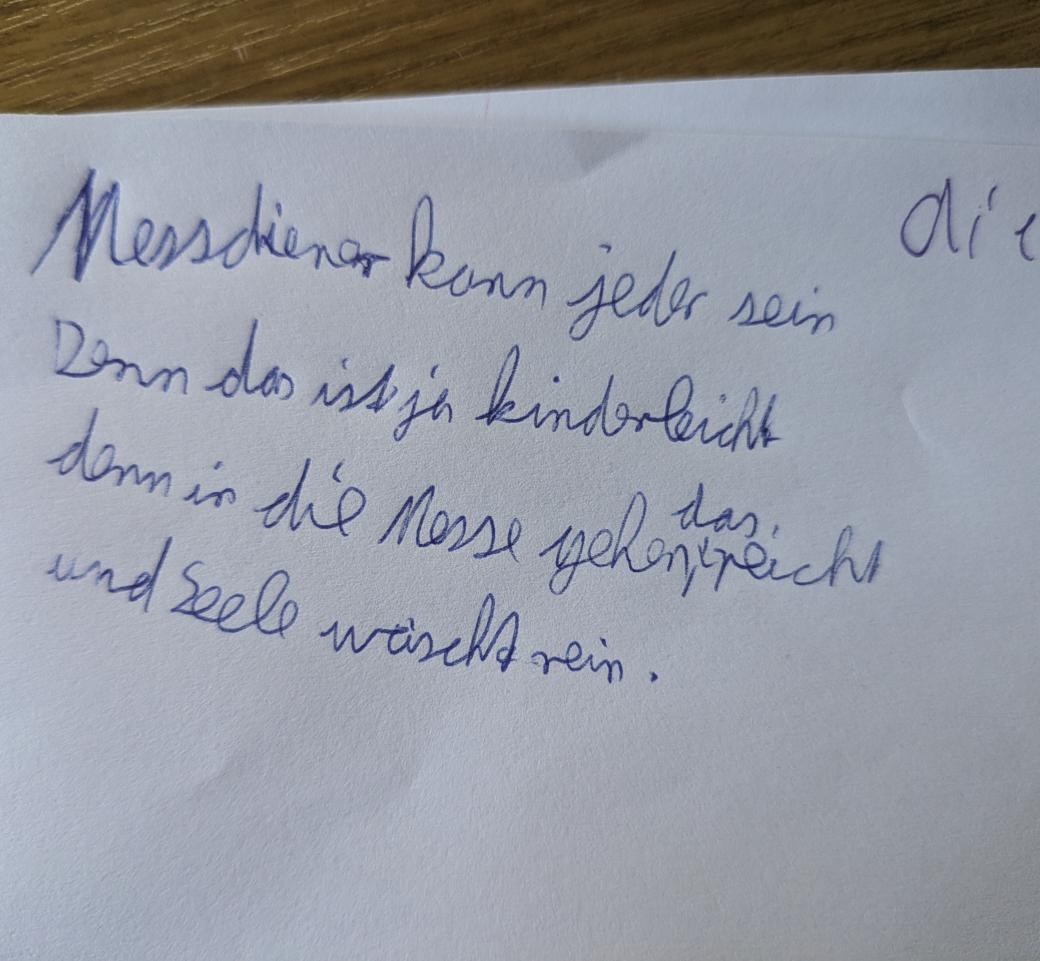 Messdiener kann jeder sein
Denn das ist ja kinderleicht
denn in die Messe gehen, das reicht
und Seele wäscht rein.
die